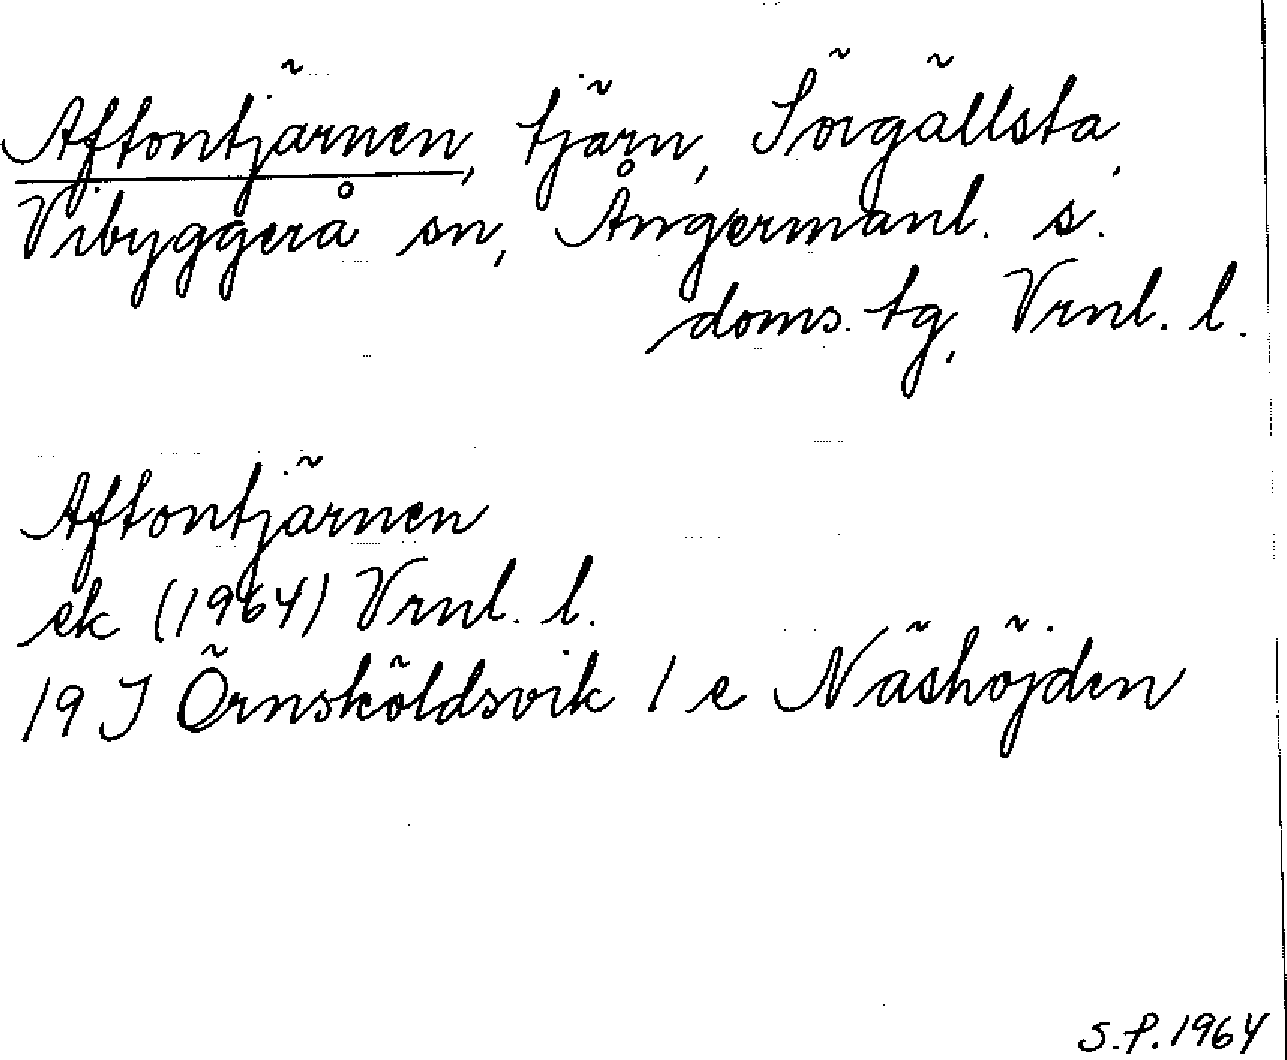 Aftontjärnen, tjärn, Sörgällsta,
Vibyggerå sn, Ångermanl. s.
doms. tg, Vrnl. l.
Aftontjärnen
ek (1964) Vrnl. l.
19 J Örnsköldsvik 1 e Näshöjden
S.P. 1964